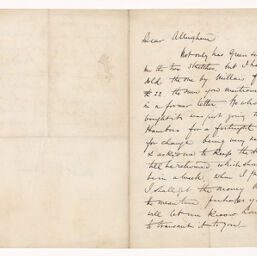 Dear Allingham
Not only has Green sent
me the two sketches, but I have
sold the one by Millais for
£22 the sum you mentioned
in a former letter. He who
bought it was just going to
Hambro for a fortnight
for change being very
& asked me to keep the
till he returned which shall
be in a week, when I
I shall get the money
the meantime perhaps you
will let me know how
to transmit it to you?